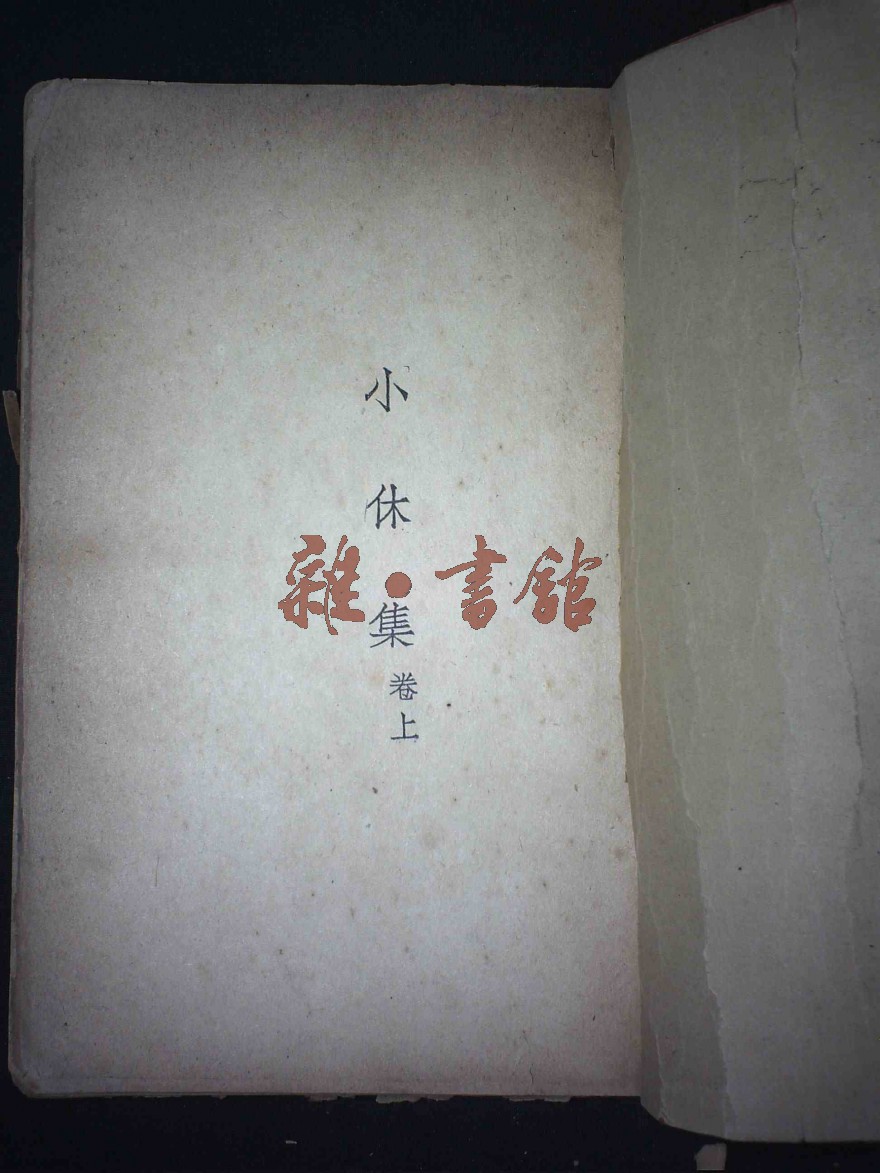 小休集
卷上
雜·書館